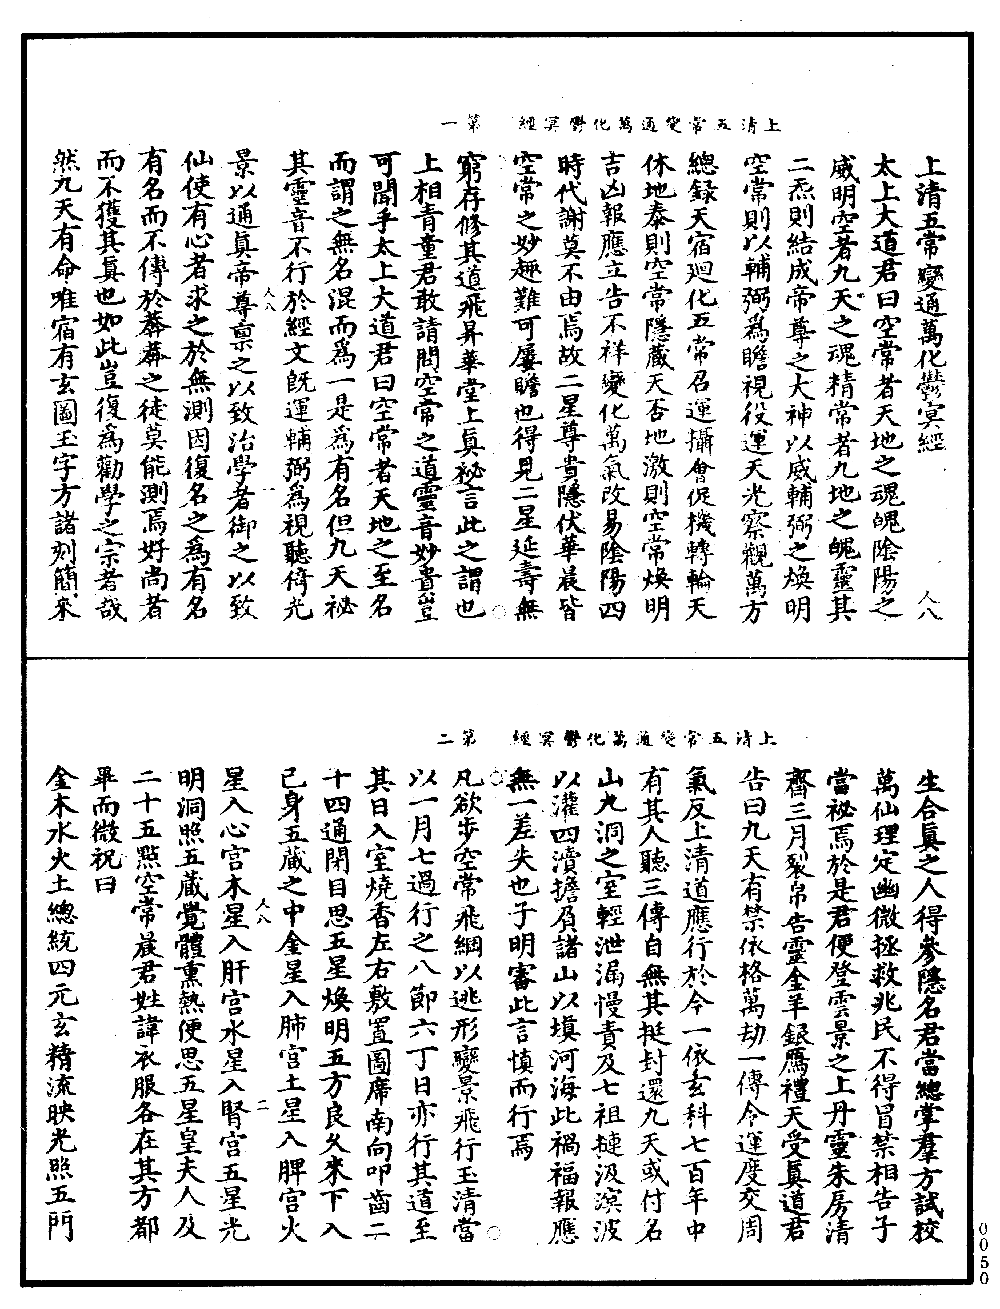 上清五常變通萬化鬱冥經 第一
上清五常變通萬化鬱冥經 人八
太上大道君曰空常者天地之魂魄陰陽之
威明空者九天之魂精常者九地之魄靈其
二炁則結成帝尊之大神以威輔弼之煥明
空常則以輔弼爲瞻視役運天光察觀萬方
總錄天宿迴化五常召運攝會促機轉輪天
休地泰則空常隱藏天否地激則空常煥明
吉凶報應立告不祥變化萬氣改易陰陽四
時代謝莫不由焉故二星尊貴隱伏華晨皆
空常之妙趣難可屢瞻也得見二星延壽無
窮存修其道飛昇華堂上真祕言此之謂也
上相青童君敢請問空常之道靈音妙貴豈
可聞乎太上大道君曰空常者天地之至名
而謂之無名混而爲一是爲有名但九天祕
其靈音不行於經文旣運輔弼爲視聽倚光
人八 一
景以通真帝尊稟之以致治學者御之以致
仙使有心者求之於無測因復名之爲有名
有名而不傳於莽莽之徒莫能測焉好尚者
而不獲其真也如此豈復爲勸學之宗者哉
然九天有命唯宿有玄圖玉字方諸刻簡來
上清五常變通萬化鬱冥經 第二
生合真之人得參隱名君當總掌羣方試校
萬仙理定幽微拯救兆民不得冒禁相告子
當祕焉於是君便登雲景之上丹靈朱房清
齋三月裂帛告靈金羊銀鴈禮天受真道君
告曰九天有禁依格萬劫一傳今運度交周
氣反上清道應行於今一依玄科七百年中
有其人聽三傳自無其挺封還九天或付名
山九洞之室輕泄漏慢責及七祖撻汲溟波
以灌四瀆擔負諸山以塡河海此禍福報應
無一差失也子明審此言慎而行焉
凡欲步空常飛綱以逃形變景飛行玉清當
以一月七過行之八節六丁日亦行其道至
其日入室燒香左右敷置圖席南向叩齒二
十四通閉目思五星煥明五方良久來下入
己身五藏之中金星入肺宮土星入脾宮火
人八 二
星入心宮木星入肝宮水星入腎宮五星光
明洞照五藏覺體熏熱便思五星皇夫人及
二十五點空常晨君姓諱衣服各在其方都
畢而微祝曰
金木水火土總統四元玄精流映光照五門
0050